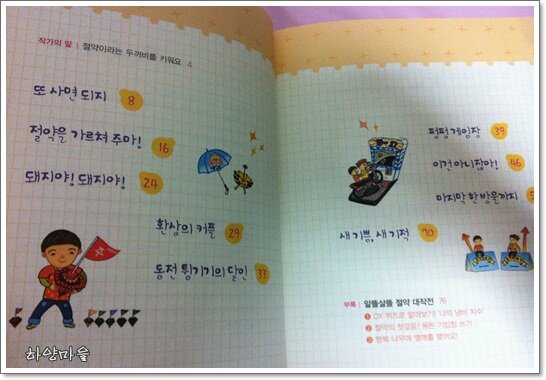 작가의 말 | 절약이라는 두꺼비를 키워요 4
또 사면 되지 8
절약을 가르쳐 주마! 16
돼지야! 돼지야! 24
환상의 커플 29
동전 튕기기의 달인 33
펑펑 게임장 39
이건 아니잖아! 46
마지막 한 방울까지
새 기쁨, 새 기적 70
부록 알뜰살뜰 절약 대작전 76
1 OX 퀴즈로 알아보기! '나의 낭비 지수'
2 절약의 첫걸음! 용돈 기입장 쓰기
3 행복 나무에 열매를 맺어요!
하얀마을